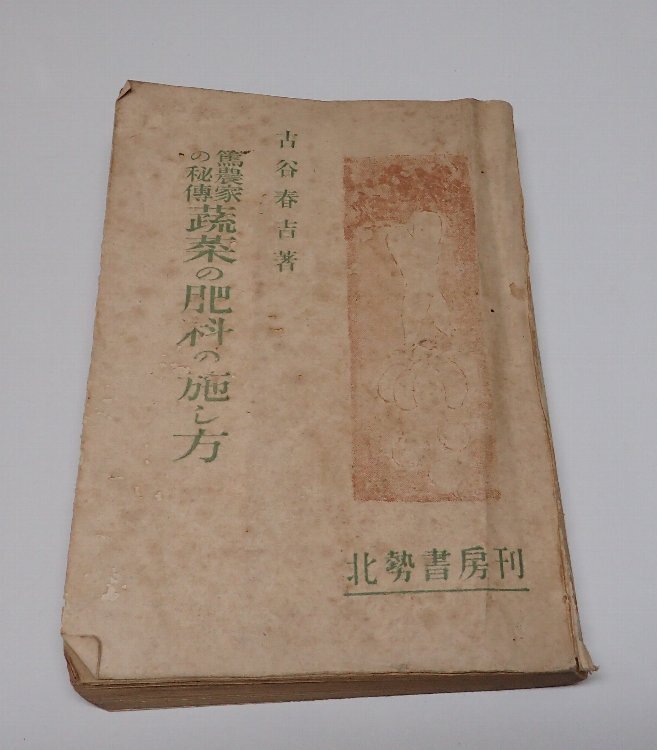 古谷春吉著
篤農家
の秘傳
蔬菜の肥料の施し方
北勢書房刊